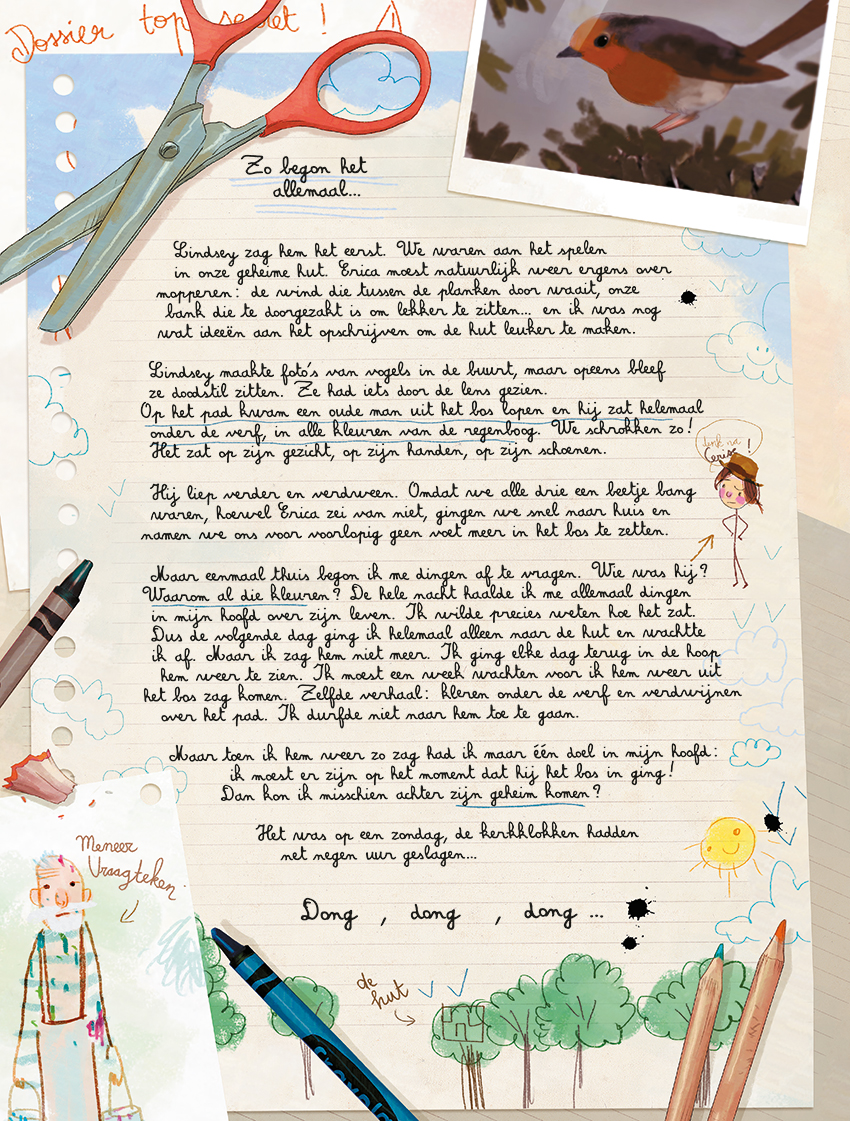 Dossier top secret !
Zo begon het
allemaal...
Lindsey zag hem het eerst. We waren aan het spelen
in onze geheime hut. Erica moest natuurlijk weer ergens over
mopperen: de wind die tussen de planken door waait, onze
bank die te doorgezakt is om lekker te zitten... en ik was nog
wat ideeën aan het opschrijven om de hut leuker te maken.
Lindsey maakte foto's van vogels in de buurt, maar opeens bleef
ze doodstil zitten. Ze had iets door de lens gezien.
Op het pad kwam een oude man uit het bos lopen en hij zat helemaal
onder de verf, in alle kleuren van de regenboog. We schrokken zo!
Het zat op zijn gezicht, op zijn handen, op zijn schoenen.
denk na
Cerise !
Hij liep verder en verdween. Omdat we alle drie een beetje bang
waren, hoewel Erica zei van niet, gingen we snel naar huis en
namen we ons voor voorlopig geen voet meer in het bos te zetten.
Maar eenmaal thuis begon ik me dingen af te vragen. Wie was hij?
Waarom al die kleuren? De hele nacht haalde ik me allemaal dingen
in mijn hoofd over zijn leven. Ik wilde precies weten hoe het zat.
Dus de volgende dag ging ik helemaal alleen naar de hut en wachtte
ik af. Maar ik zag hem niet meer. Ik ging elke dag terug in de hoop
hem weer te zien. Ik moest een week wachten voor ik hem weer uit
het bos zag komen. Zelfde verhaal: kleren onder de verf en verdwijnen
over het pad. Ik durfde niet naar hem toe te gaan.
Maar toen ik hem weer zo zag had ik maar één doel in mijn hoofd:
ik moest er zijn op het moment dat hij het bos in ging!
Dan kon ik misschien achter zijn geheim komen?
Het was op een zondag, de kerkklokken hadden
net negen uur geslagen...
Meneer
Vraagteken
Dong , dong , dong ...
de
hut